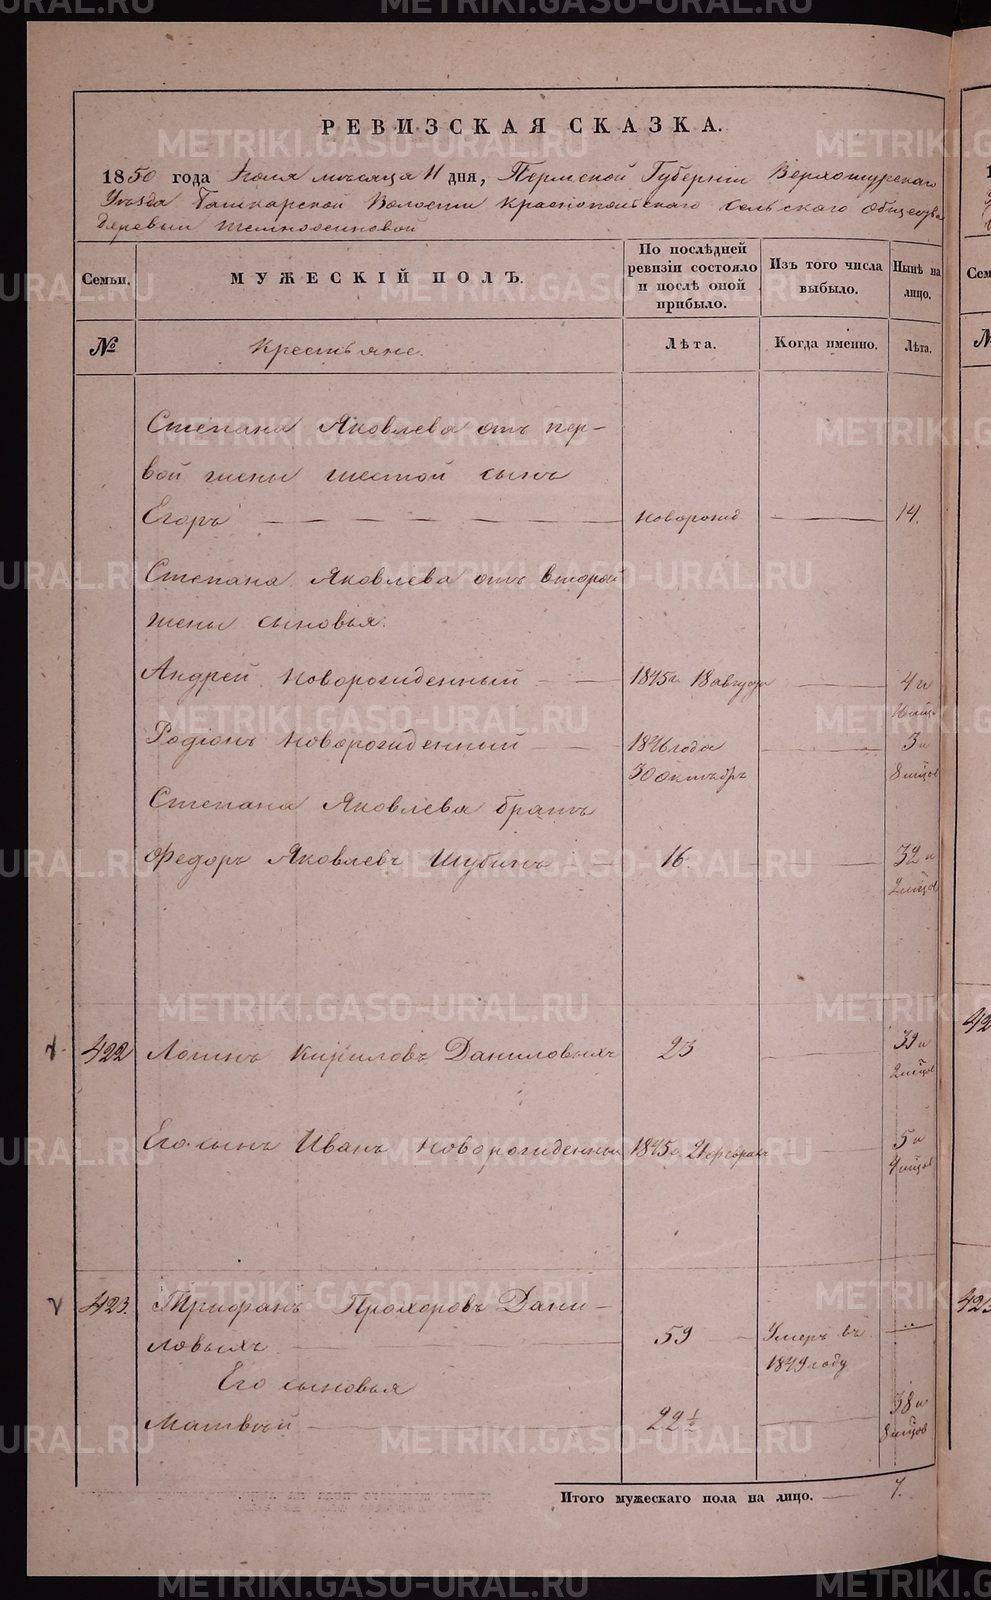 РЕВИЗСКАЯ СКАЗКА.
1850 года Іюля мѣсяца 11 дня, Пермской Губерніи Верхотурскаго
Уѣзда Башкарской Волости Краснопольскаго сельскаго Общества
Деревни Темноосиновой
Семьи.
МУЖЕСКІЙ ПОЛЪ.
По послѣдней ревизіи состояло и послѣ оной прибыло.
Изъ того числа выбыло.
Нынѣ на лицо.
№
Крестьяне.
Лѣта.
Когда именно.
Лѣта.
Степана Яковлева отъ пер-
вой жены шестой сынъ
Егоръ новорожд 14.
Степана Яковлева отъ второй
жены сыновья:
Андрей новорожденный 1845го 18 августа 4 и
Родіонъ новорожденный 1846 года 3 и
30 октябрь 8 мѣсцов
Степана Яковлева братъ
Федоръ Яковлевъ Шубинъ 16 32 и
2 мѣсцов
422 Логинъ Кириловъ Даниловыхъ 23 39 и
2 мѣсцов
Его сынъ Иванъ новорожденный 1845го 21 февраля 5 и
4 мѣсцов
423 Трифанъ Прохоровъ Дани-
ловыхъ 59 Умеръ въ
1849 году
Его сыновья
Матвѣй 22½ 38 и
8 мѣсцов
Итого мужескаго пола на лицо. 7.
METRIKI.GASO-URAL.RU